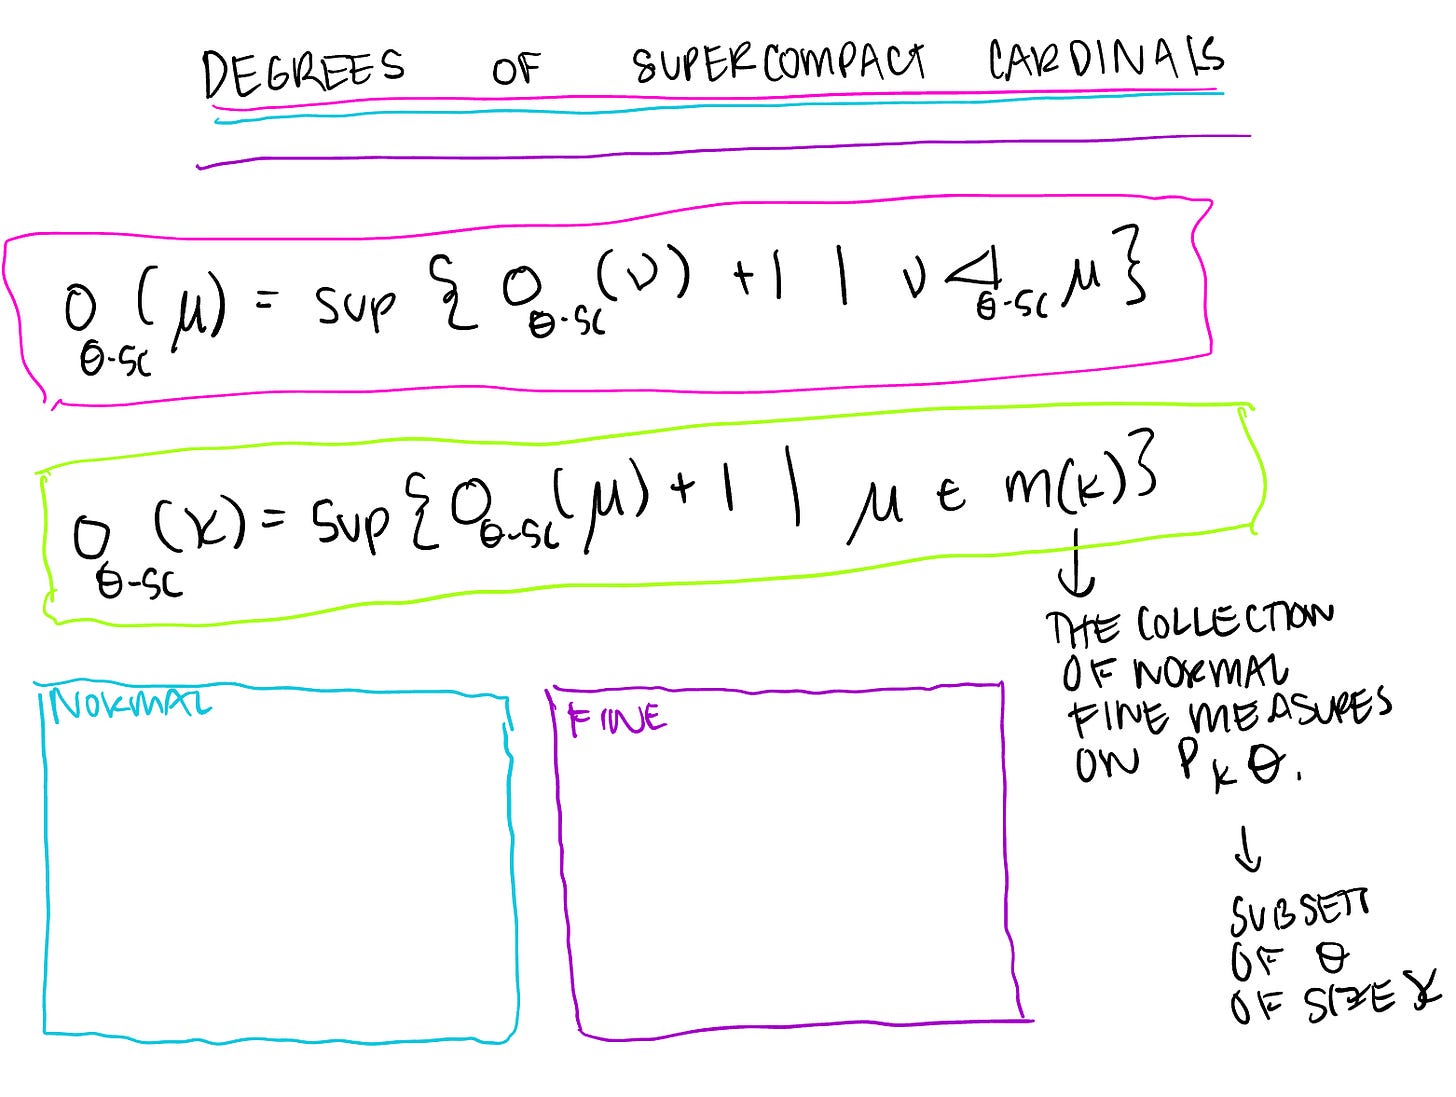 DEGREES OF SUPERCOMPACT CARDINALS
o_θ-sc(μ) = sup { o_θ-sc(ν) + 1 | ν ◁_θ-sc μ }
o_θ-sc(κ) = sup { o_θ-sc(μ) + 1 | μ ∈ m(κ) }
↓
THE COLLECTION
OF NORMAL
FINE MEASURES
ON P_κ θ.
↓
SUBSETS
OF θ
OF SIZE κ
NORMAL
FINE